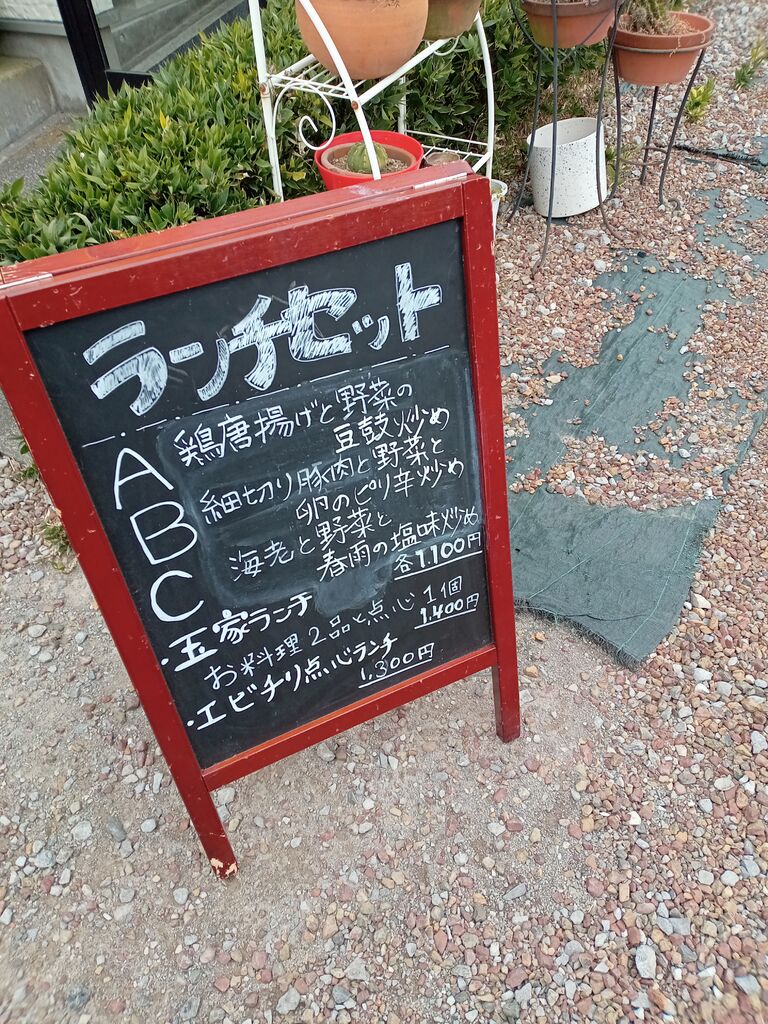 ランチセット
A 鶏唐揚げと野菜の
豆鼓炒め
B 細切り豚肉と野菜と
卵のピリ辛炒め
C 海老と野菜と
春雨の塩味炒め
各1.100円
・玉家ランチ
お料理2品と点心1個
1.400円
・エビチリ点心ランチ
1.300円